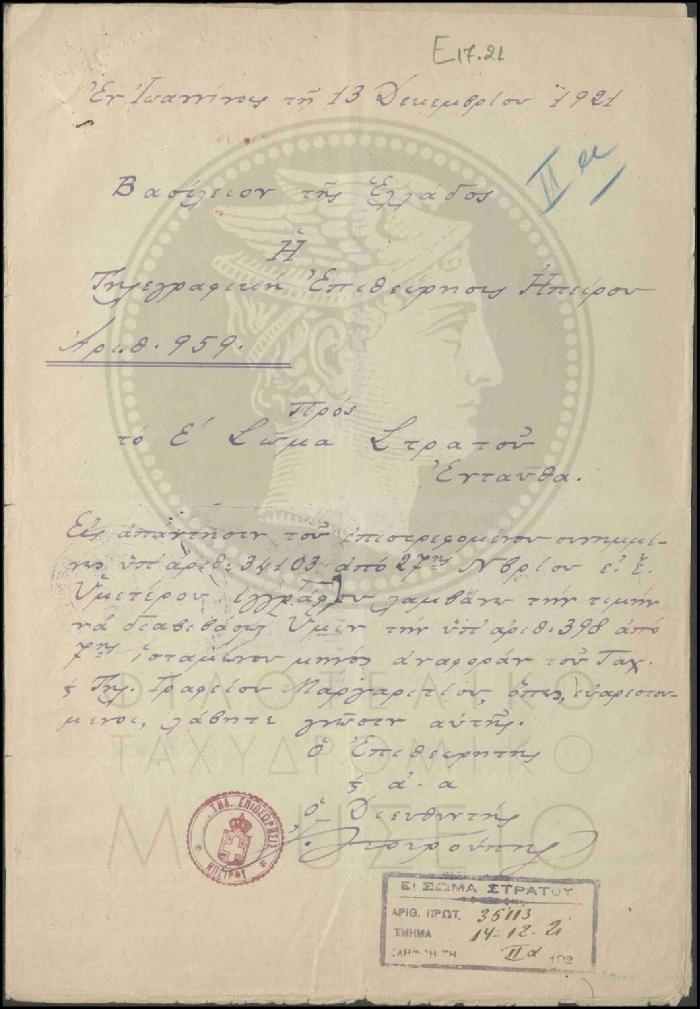 E17.21
Ἐν Ἰωαννίνοις τῇ 13 Δεκεμβρίου 1921
IIα
Βασίλειον τῆς Ἑλλάδος
Ἡ
Τηλεγραφικὴ Ἐπιθεώρησις Ἠπείρου
Ἀριθ. 959.
Πρός
τὸ Ε΄ Σῶμα Στρατοῦ
Ἐνταῦθα.
Εἰς ἀπάντησιν τοῦ ἐπιστρεφομένου συνημμέ-
νως ὑπ' ἀριθ. 34103 ἀπό 27ης Νβρίου ἐ. ἔ.
Ὑμετέρου ἐγγράφου λαμβάνω τὴν τιμὴν
νά διαβιβάσω Ὑμῖν τὴν ὑπ' ἀριθ. 398 ἀπό
7ης ἱσταμένου μηνός ἀναφοράν τοῦ Ταχ.
ς Τηλ. Γραφείου Μαργαριτίου, ὅπως, εὐαρεστού-
μενοι, λάβητε γνῶσιν αὐτῆς.
ὁ Ἐπιθεωρητής
ς ἀ. α
ὁ Διευθυντής
ΤΗΛ. ΕΠΙΘΕΩΡΗΣΙΣ
ΗΠΕΙΡΟΥ
Ε! ΣΩΜΑ ΣΤΡΑΤΟΥ
ΑΡΙΘ. ΠΡΩΤ. 35113
ΤΜΗΜΑ 14-12-21
ΕΛΗΦΘΗ ΤΗ IIα 192
ΦΙΛΟΤΕΛΙΚΟ
ΤΑΧΥΔΡΟΜΙΚΟ
ΜΟΥΣΕΙΟ